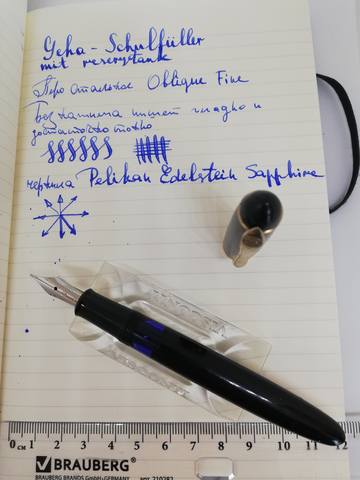 Geha - Schulfüller
mit reservetank
Перо стальное Oblique Fine
Без нажима пишет гладко и
достаточно тонко
чернила Pelikan Edelstein Sapphire
0 см 1 2 3 4 5 6 7 8 9 10 11 12
BRAUBERG®
BRAUBERG BRANDS GmbH-GERMANY арт. 210282